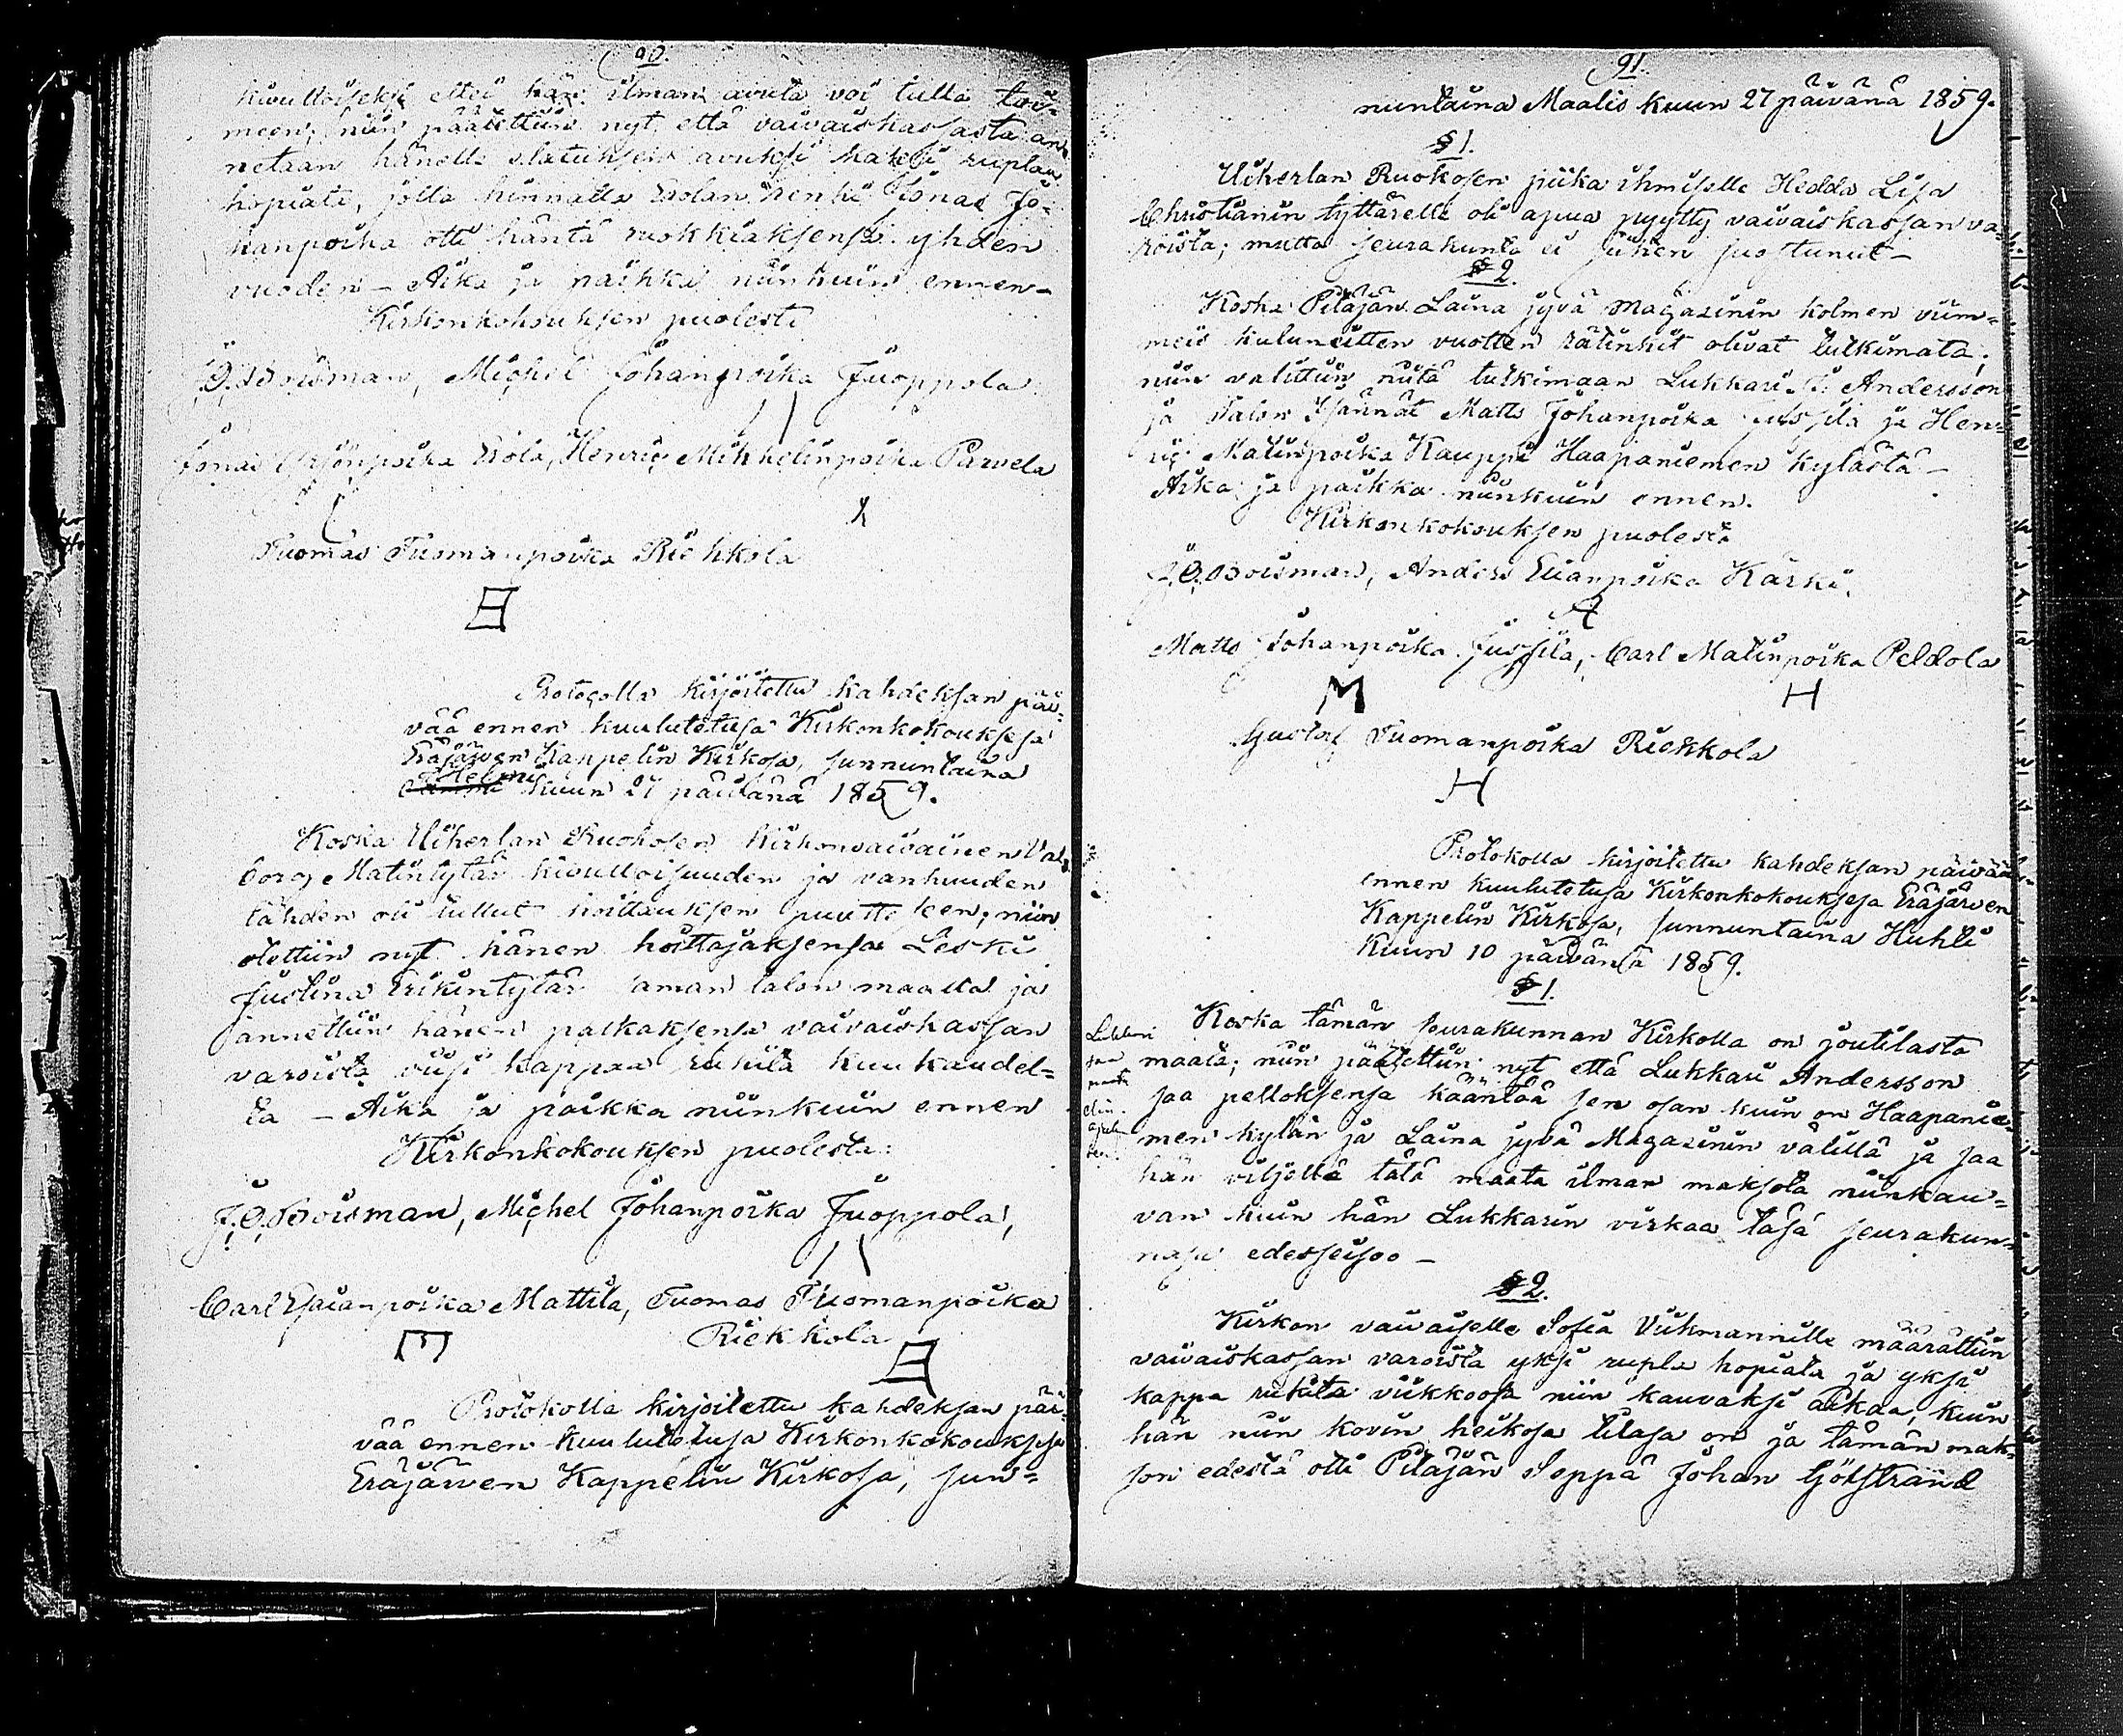 90.
kivulloiseksi ettei hän ilman avuta voi tulla toi-
meen; niin päätettiin nyt että vaivaiskassasta an-
netaan hänelle elatuksen avuksi kaksi ruplaa
hopiata, jolla hinnalla Erolan renki Jonas Jo-
hanpoika otti häntä ruokkiaksensa yhden
vuoden – Aika ja paikka niinkuin ennen –
Kirkonkokouksen puolesta
J. O. Boisman, Michel Johanpoika Juoppola
Jonas Yrjönpoika Erola, Henric Mikkelinpoika Parvela
Tuomas Tuomanpoika Riekkola
Protocolla kirjoitettu kahdeksan päi-
vää ennen kuulutetusa Kirkonkokouksesa
Eräjärven Kappelin Kirkosa, sunnuntaina
Helmi Kuun 27 päivänä 1859.
Koska Uiherlan Ruokosen kirkonvaivainen Val-
borg Matintytär kivulloisuuden ja vanhuuden
tähden oli tullut hoitauksen puutteesen; niin
otettiin nyt hänen hoitajaksensa Leski
Justina Erikintytär saman talon maalta ja
annettiin hänen palkaksensa vaivaiskassan
varoista viisi kappaa rukiita kuukaudel-
ta – Aika ja paikka niinkuin ennen
Kirkonkokouksen puolesta:
J. O. Boisman, Michel Johanpoika Juoppola,
Carl Esaianpoika Mattila, Tuomas Tuomanpoika
Riekkola
Protokolla kirjoitettu kahdeksan päi-
vää ennen kuulutetusa Kirkonkokouksesa
Eräjärven Kappelin Kirkosa, sun-
91.
nuntaina Maalis kuun 27 päivänä 1859.
§ 1.
Uiherlan Ruokosen piika ihmiselle Hedda Lisa
Christianin tyttärelle oli apua pyyttty vaivaiskassan va-
roista; mutta seurakunta ei siihen suostunut –
§ 2.
Koska Pitäjän Laina jyvä Magasinin kolmen viim-
meis kuluneitten vuotten räkinkit olivat tutkimata;
niin valittiin niitä tutkimaan Lukkari J. Andersson
ja Talon Isännät Matts Johanpoika Jussila ja Hen-
ric Matinpoika Kauppi Haapaniemen kylästä –
Aika ja paikka niinkuin ennen.
Kirkonkokouksen puolesta
J. O. Boisman, Anders Elianpoika Kärki.
A
Matts Johanpoika Jussila, Carl Matinpoika Peldola
M H
Gustaf Tuomanpoika Riekkola
H
Protokolla kirjoitettu kahdeksan päivää
ennen kuulutetusa Kirkonkokouksesa Eräjärven
Kappelin Kirkosa, sunnuntaina Huhti
Kuun 10 päivänä 1859.
§ 1.
Koska tämän seurakunnan Kirkolla on joutilasta
maata; niin päätettiin nyt että Lukkari Andersson
saa pelloksensa kääntää sen osan kuin on Haapanie-
men kylän ja Laina jyvä Magasinin välillä ja saa
hän viljellä tätä maata ilman maksota niinkau-
van kuin hän Lukkarin virkaa täsä seurakun-
nasa edesseisoo –
Lukkari
saa
maata
§ 2.
Kirkon vaivaiselle Sofia Viikmannille määrättiin
vaivaiskassan varoista yksi rupla hopiata ja yksi
kappa rukiita viikkoosa niin kauvaksi aikaa, kuin
hän niin kovin heikosa tilasa on ja tämän mak-
son edestä otti Pitäjän Seppä Johan Götstrand